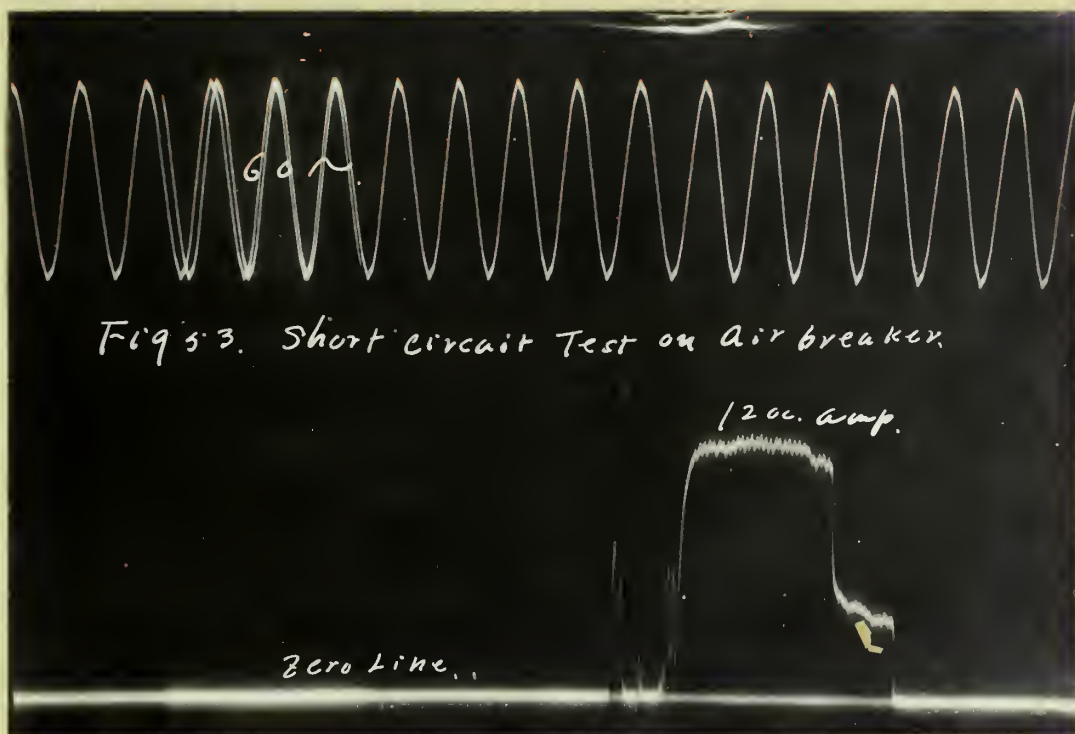 60~.
Fig 53. Short circuit Test on air breaker.
1200. amp.
Zero Line..